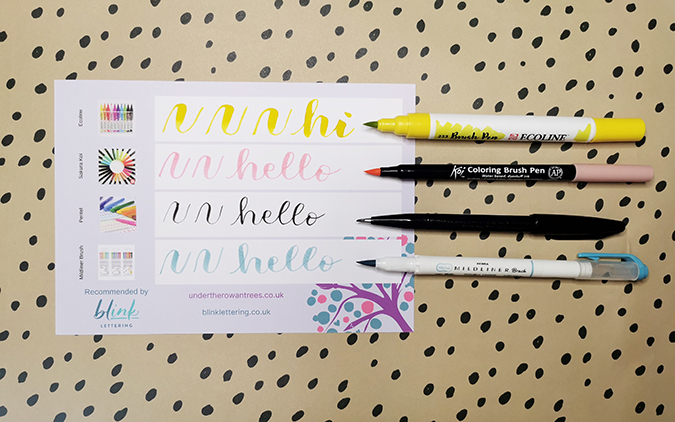 Ecoline
hi
Brush Pen ECOLINE
Sakura Koi
hello
Koi Coloring Brush Pen AP
Pentel
hello
Mildliner Brush
hello
ZEBRA
MILDLINER Brush
Recommended by
blink
LETTERING
undertherowantrees.co.uk
blinklettering.co.uk